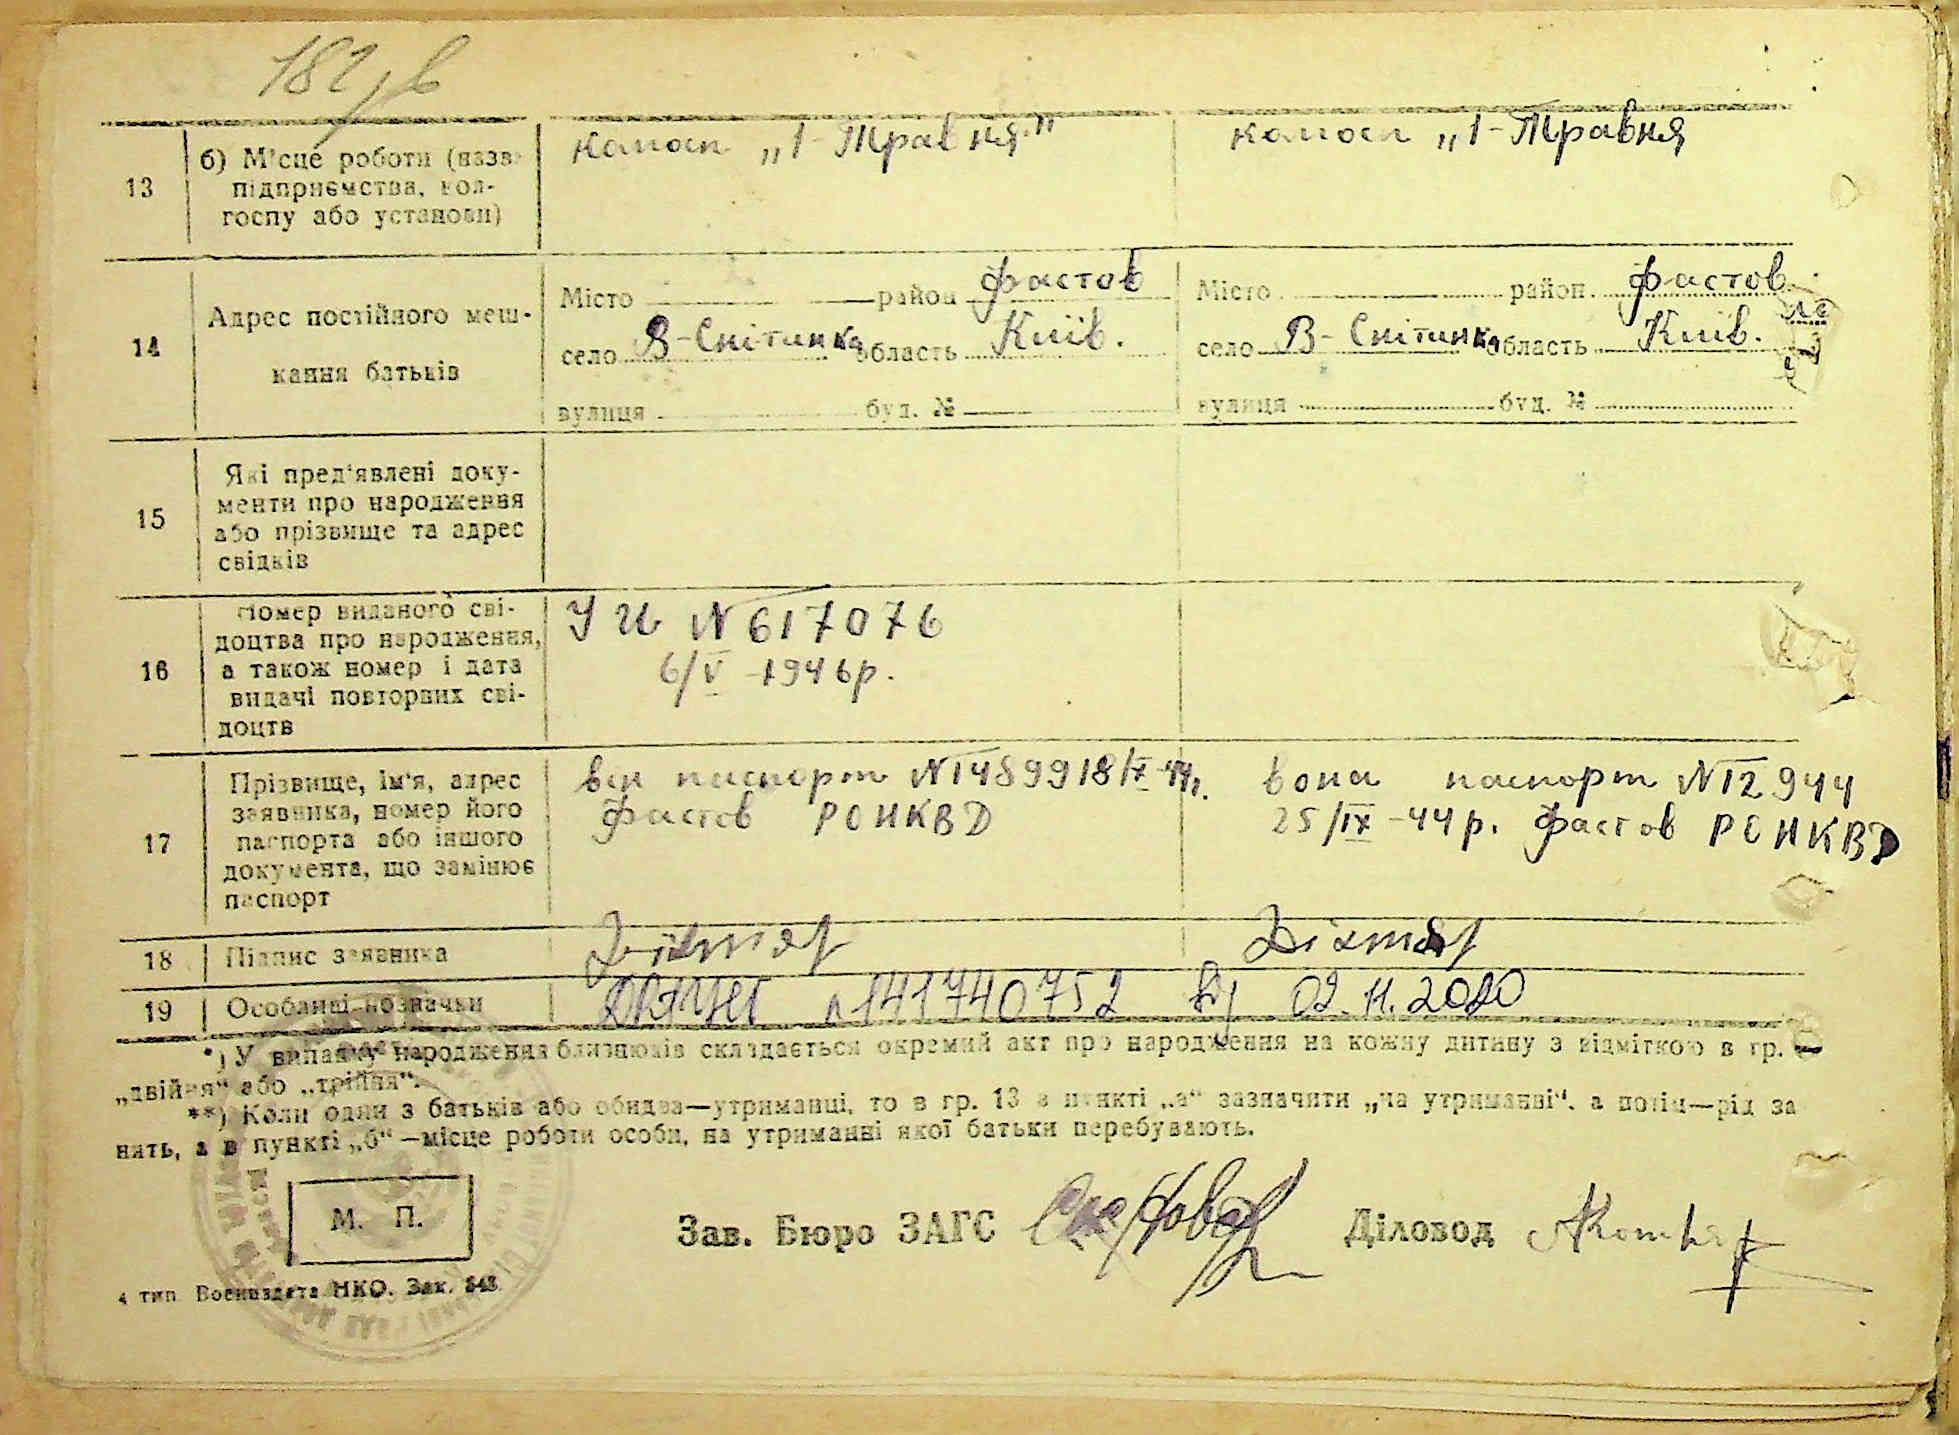 13
б) Місце роботи (назва
підприємства, кол-
госпу або установи)
„1-Травня"
„1-Травня
14
Адрес постійного меш-
кання батьків
Місто район Фастов
село В-Снітинка область Київ.
вулиця буд. №
Місто район Фастов
село В-Снітинка область Київ.
вулиця буд. №
15
Які пред'явлені доку-
менти про народження
або прізвище та адрес
свідків
16
Номер виданого сві-
доцтва про народження,
а також номер і дата
видачі повторних сві-
доцтв
N 617076
6/V-1946р.
17
Прізвище, ім'я, адрес
заявника, номер його
паспорта або іншого
документа, що замінює
паспорт
він паспорт №1489918/IX-44р.
Фастов РОНКВД
вона паспорт №12944
25/IX-44р. Фастов РОНКВД
18 Підпис заявника
19 Особливі позначки
141740752 02.11.2020
*) У випадку народження близнюків складається окремий акт про народження на кожну дитину з відміткою в гр.
„двійня" або „трійня".
**) Коли один з батьків або обидва—утриманці, то в гр. 13 в пункті „а" зазначити „на утриманні", а потім—рід за
нять, а в пункті „б"—місце роботи особи, на утриманні якої батьки перебувають.
М. П.
Зав. Бюро ЗАГС
Діловод
4 тип Воениздата НКО. Зак. 543